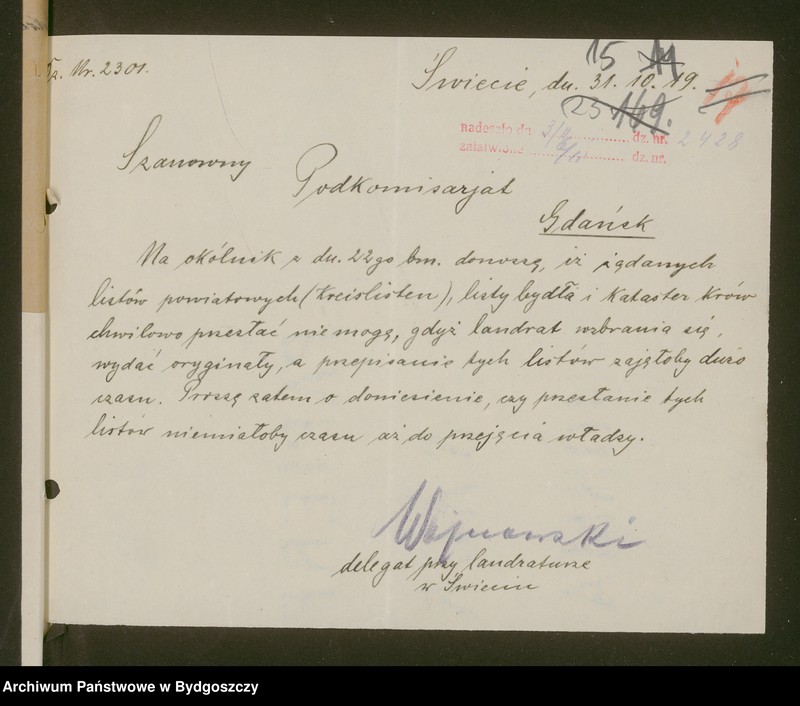 Tz. Nr. 2301.
15 11
Świecie, dn. 31. 10. 19.
25 169.
nadeszło dn. 3/11 dz. nr. 2428
załatwione dz. nr.
Szanowny
Podkomisarjat
Gdańsk
Na okólnik z dn. 22go bm. donoszę, iż żądanych
listów powiatowych (Kreislisten), listy bydła i Kataster Krów
chwilowo przesłać niemogę, gdyż landrat wzbrania się,
wydać oryginały, a przepisanie tych listów zajęłoby dużo
czasu. Proszę zatem o doniesienie, czy przesłanie tych
listów niemiałoby czasu aż do przejęcia władzy.
Wojnowski
delegat przy landraturze
w Świeciu
Archiwum Państwowe w Bydgoszczy